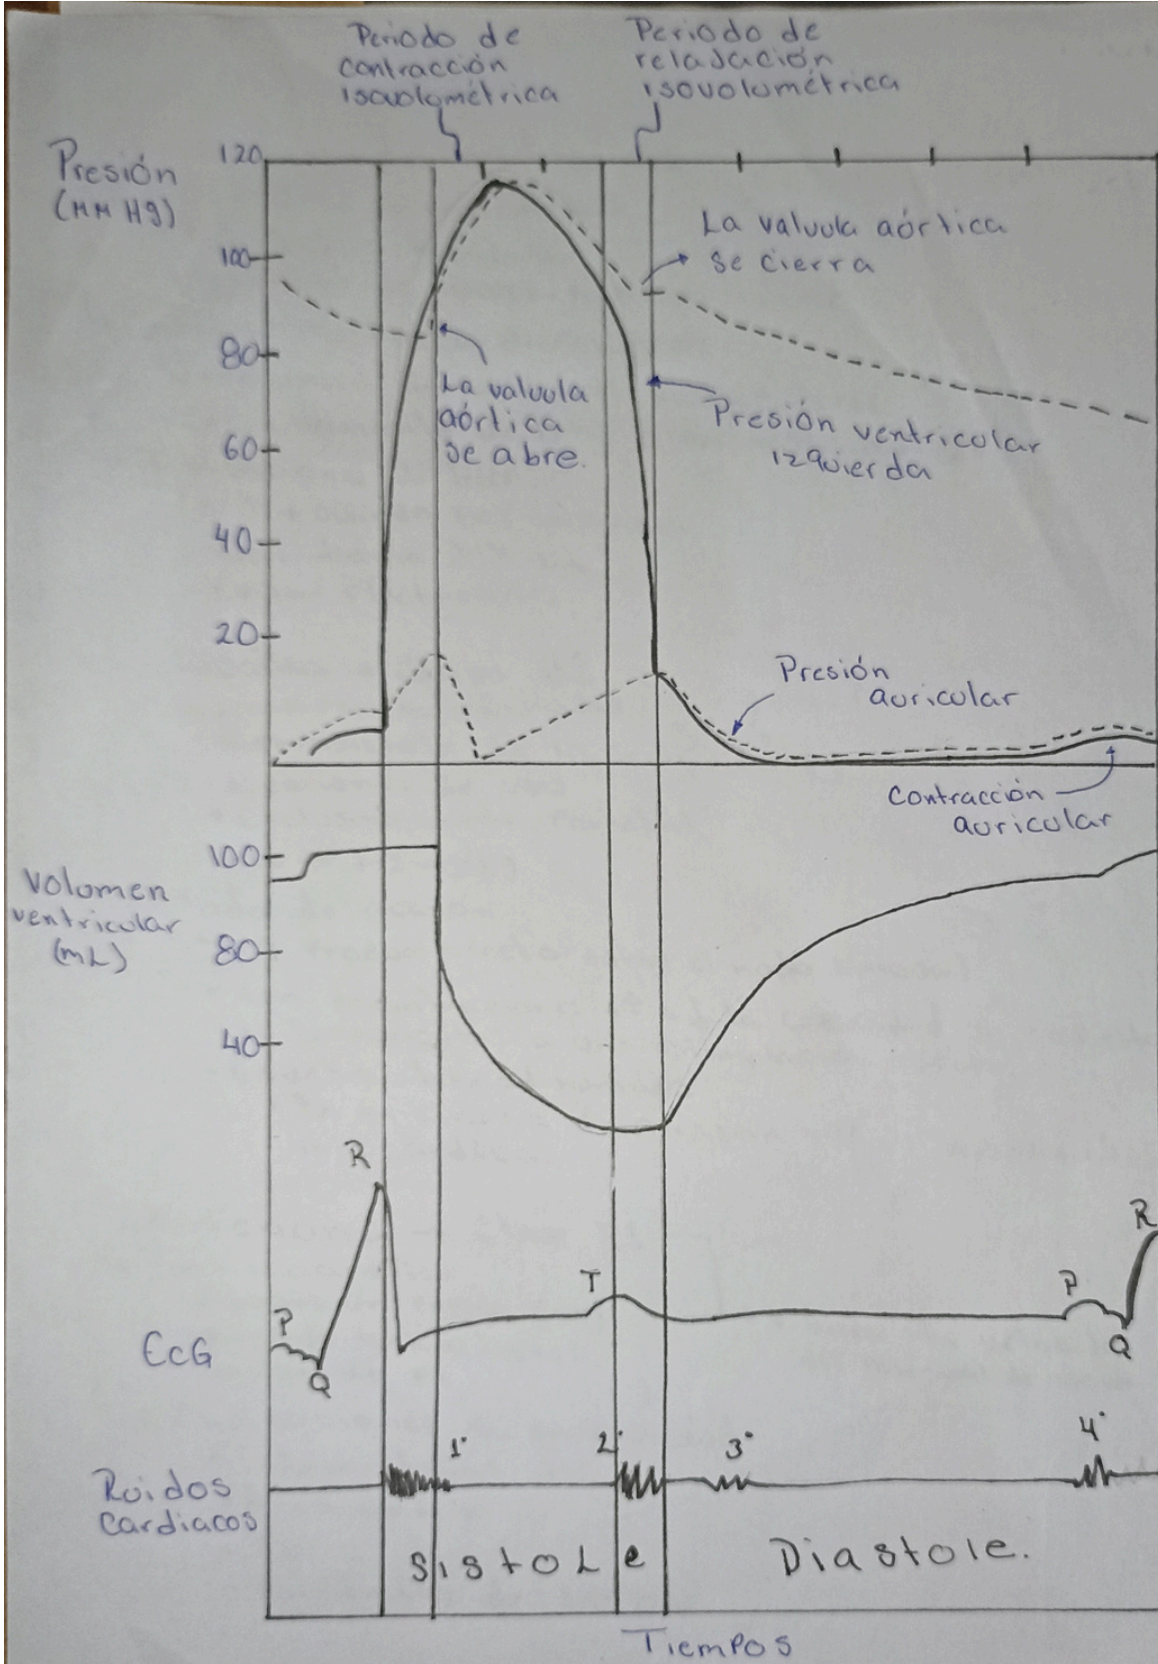 Periodo de
contracción
isovolométrica
Periodo de
relajación
isovolumétrica
Presión
(MM Hg)
120
100
80
60
40
20
La valvula aórtica
se cierra
La valvula
aórtica
se abre.
Presión ventricular
izquierda
Presión
auricular
Contracción
auricular
Volumen
ventricular
(mL)
100
80
40
R
P
Q
T
P
Q
R
EcG
1°
2°
3°
4°
Ruidos
cardiacos
SistoLe
Diastole.
Tiempos